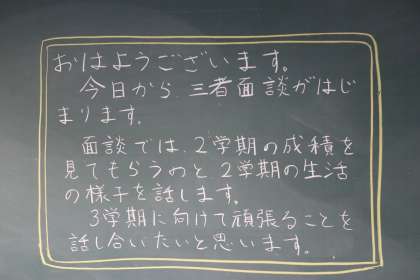 おはようございます。
今日から三者面談がはじ
まります。
面談では、2学期の成績を
見てもらうのと2学期の生活
の様子を話します。
3学期に向けて頑張ることを
話し合いたいと思います。